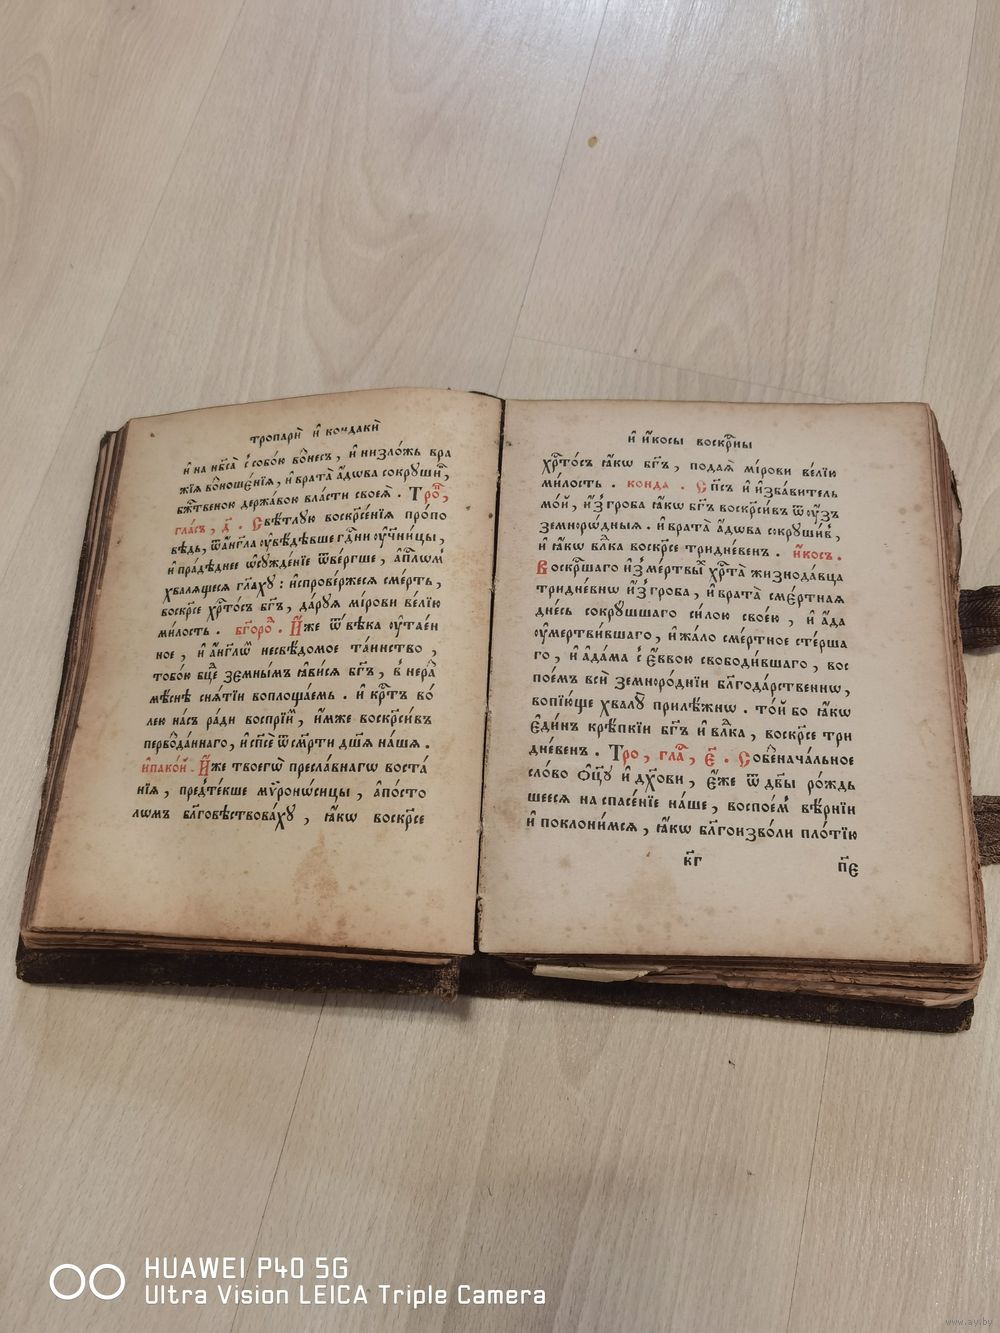 тропарѝ и҆ кѡндакѝ
и҆ на нб҃са̀ с̾ собо́ю вᲂ́несъ , и҆ низло́жь вра
жїѧ вᲂноше́нїѧ , и҆ врата̀ а҆́дѡва сокрꙋши́ ,
бж҃твеною держа́вою вла́сти своеѧ̀ . Тро ,
гла́съ , д҃ . Свѣ́тлꙋю воскрⷭ҇е́нїѧ про́по
вѣдь , ѿ а҆́нг҃ла ᲂу҆вѣ́дѣвше гдⷭ҇ни ᲂу҆чн҃и́цы ,
и҆ пра́дѣднее ѡ҆сꙋжде́нїе ѿве́ргше , а҆пⷭ҇лѡмъ
хва́лѧщесѧ гл҃ахꙋ : и҆спрове́ржесѧ сме́рть ,
воскрⷭ҇е хрⷭ҇то́съ бг҃ъ , да́рꙋѧ мі́рови ве́лїю
ми́лость . бг҃оро . И҆́же ѿ вѣ́ка ᲂу҆тае́н
ное , и҆ а҆́нг҃лѡм несвѣ́домое та́инство ,
тобо́ю бц҃е земны́мъ ꙗ҆ви́сѧ бг҃ъ , в̾ нера
мѣ́снѣ снѧ́тїи воплоща́емь . и҆ крⷭ҇тъ во́
лею на́съ ра́ди воспрїи́м , и҆́мже воскрⷭ҇си́въ
перводанна́го , и҆ сп҃сѐ ѿ сме́рти дш҃а на́шѧ .
и҆пакои́ . И҆́же твоегѡ̀ пресла́внагѡ воста́
нїѧ , предте́кше мѷроно́сицы , а҆по́сто
лѡмъ бл҃говѣствова́хꙋ , ꙗ҆́кѡ воскрⷭ҇се
и҆ и҆́косы воскрⷭ҇ны
хрⷭ҇то́съ ꙗ҆́кѡ бг҃ъ , подаѧ̀ мі́рови ве́лїю
ми́лость . конда . Сп҃съ и҆ и҆зба́витель
мо́й , и҆з̾ гро́ба ꙗ҆́кѡ бг҃ъ воскрⷭ҇си́въ ѿ ᲂу҆́зъ
земноро́дныѧ . и҆ врата̀ а҆́дѡва сокрꙋши́в ,
и҆ ꙗ҆́кѡ влⷣка воскрⷭ҇се тридне́венъ . и҆́косъ .
Воскрⷭ҇шаго и҆з̾ ме́ртвых хрⷭ҇та̀ жизнода́вца
тридне́внѡ и҆з̾ гро́ба , и҆ врата̀ сме́ртнаѧ
дне́сь сокрꙋ́шшаго си́лою свое́ю , и҆ а҆́да
ᲂу҆мертви́вшаго , и҆ жа́ло сме́ртное сте́рша
го , и҆ а҆да́ма с̾ є҆́ввою свободи́вшаго , вос
пое́мъ всѝ земноро́днїи бл҃года́рственнѡ ,
вопїю́ще хвалꙋ̀ приле́жнѡ . то́й бо ꙗ҆́кѡ
є҆ди́нъ крѣ́пкїи бг҃ъ и҆ влⷣка , воскрⷭ҇се три
дне́венъ . Тро , гла , є҃ . Собезнача́льное
сло́во ѻ҆ц҃ꙋ̀ и҆ дх҃ови , є҆́же ѿ дв҃ы ро́ждь
шеесѧ на спасе́нїе на́ше , воспое́м вѣ́рнїи
и҆ поклони́мсѧ , ꙗ҆́кѡ бл҃гоизво́ли пло́тїю
к҃г п҃є
HUAWEI P40 5G
Ultra Vision LEICA Triple Camera
www.ay.by